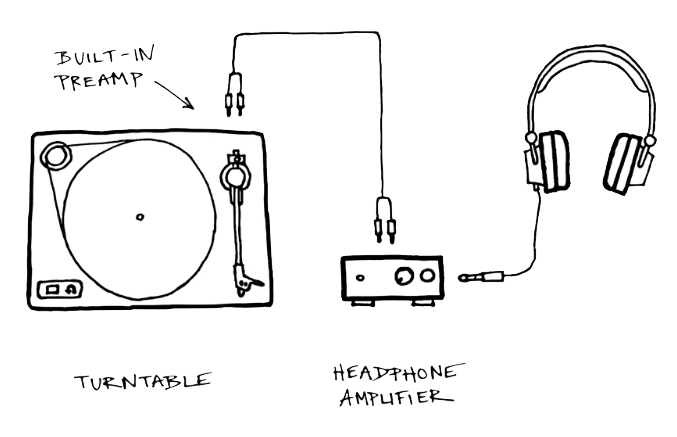 BUILT-IN
PREAMP
TURNTABLE
HEADPHONE
AMPLIFIER